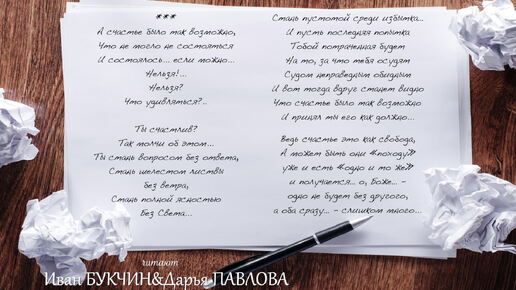 ***
А счастье было так возможно,
Что не могло не состояться
И состоялось... если можно...
Нельзя!...
Нельзя?
Что удивляться?..
Ты счастлив?
Так молчи об этом...
Ты стань вопросом без ответа,
Стань шелестом листвы
без ветра,
Стань полной ясностью
Без Света...
Стань пустотой среди избытка...
И пусть последняя попытка
Тобой потраченная будет
На то, за что тебя осудят
Судом неправедным обидным
И вот тогда вдруг станет видно
Что счастье было так возможно
И принял ты его как должно...
Ведь счастье это как свобода,
А может быть они «походу»
уже и есть «одно и то же»
и получается... о, Боже... -
одно не будет без другого,
а оба сразу... - слишком много...
читают
Иван БУКЧИН&Дарья ПАВЛОВА